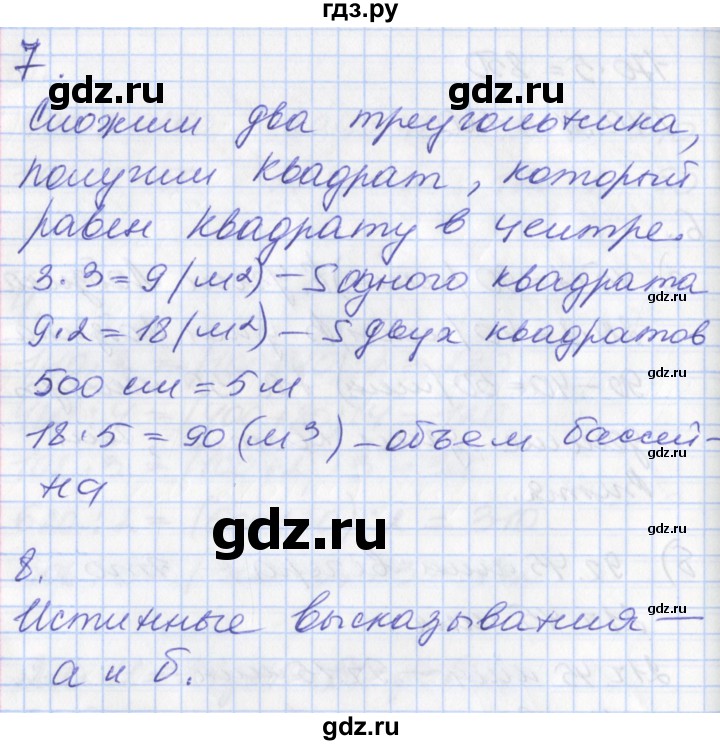 гдз.ру
7.
gdz.ru gdz.ru
Сложим два треугольника,
gdz.ru
получим квадрат, который
равен квадрату в центре.
3·3=9(м2) – S одного квадрата
gdz.ru
9·2=18(м2) – S двух квадратов
gdz.ru
500 см = 5 м
18·5 = 90 (м3) – объем бассей-
gdz.ru
на
gdz.ru
gdz.ru
8.
gdz.ru
Истинные высказывания —
а и б.
gdz.ru
gdz.ru